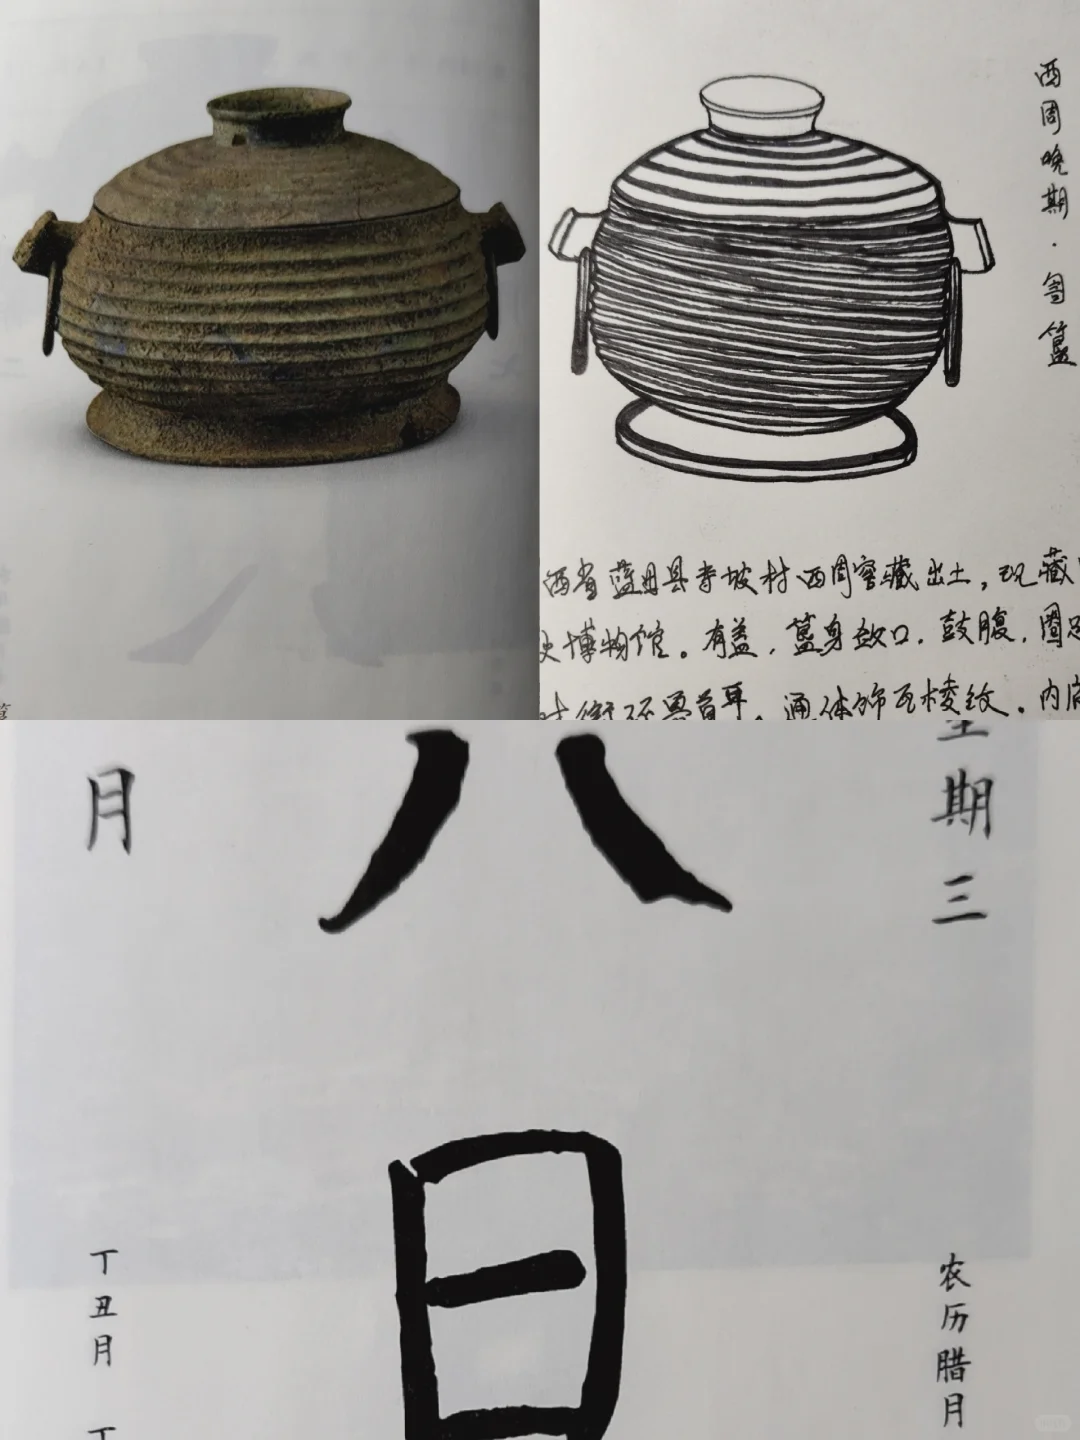 西周晚期·訇簋
西省蓝田县寺坡村西周窖藏出土，现藏
史博物馆。有盖，簋身敛口，鼓腹，圈足
对衔环兽首耳，通体饰瓦棱纹，内底
簋
月
八
日
星期三
丁丑月 丁
农历腊月